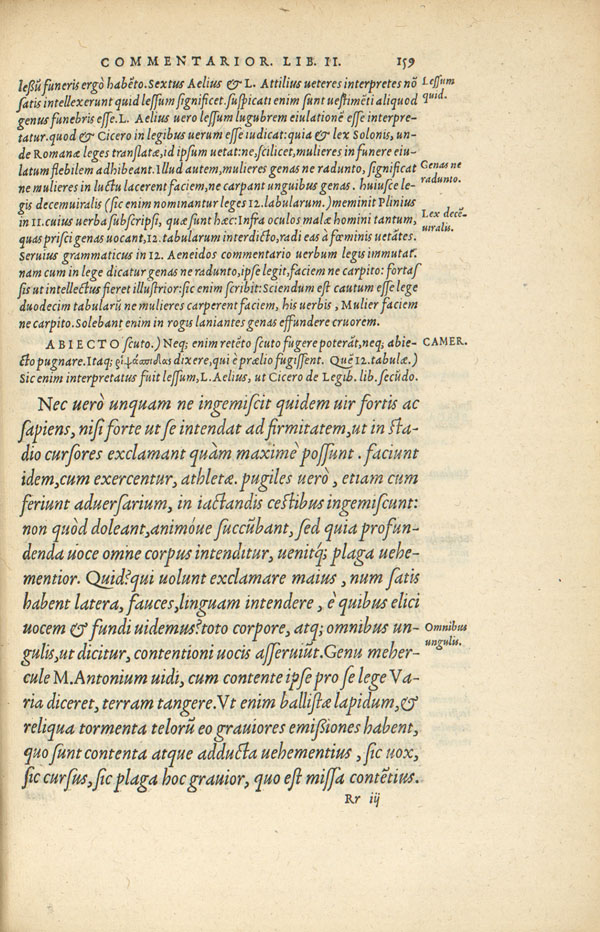 COMMENTARIOR. LIB. II. 159
leßū funeris ergò habēto. Sextus Aelius & L. Attilius ueteres interpretes nō
satis intellexerunt quid lessum significet. suspicati enim sunt uestimēti aliquod
genus funebris esse. L. Aelius uero lessum lugubrem eiulationē esse interpre-
tatur. quod & Cicero in legibus uerum esse iudicat: quia & lex Solonis, un-
de Romanæ leges translatæ, id ipsum uetat: ne, scilicet, mulieres in funere eiu-
latum flebilem adhibeant. Illud autem, mulieres genas ne radunto, significat
ne mulieres in luctu lacerent faciem, ne carpant unguibus genas. huiusce le-
gis decemuiralis (sic enim nominantur leges 12. tabularum.) meminit Plinius
in 11. cuius uerba subscripsi, quæ sunt hæc: Infra oculos malæ homini tantum,
quas prisci genas uocant, 12. tabularum interdicto, radi eas à fœminis uetātes.
Seruius grammaticus in 12. Aeneidos commentario uerbum legis immutat.
nam cum in lege dicatur genas ne radunto, ipse legit, faciem ne carpito: fortas
sis ut intellectus fieret illustrior: sic enim scribit: Sciendum est cautum esse lege
duodecim tabularū ne mulieres carperent faciem, his uerbis, Mulier faciem
ne carpito. Solebant enim in rogis laniantes genas effundere cruorem.
Lessum
quid.
Genas ne
radunto.
Lex decē-
uiralis.
ABIECTO scuto.) Neq; enim retēto scuto fugere poterāt, neq; abie-
cto pugnare. Itaq; ῥιψάσπιδας dixere, qui è prælio fugissent. Quē 12. tabulæ.)
Sic enim interpretatus fuit lessum, L. Aelius, ut Cicero de Legib. lib. secūdo.
CAMER.
Nec uerò unquam ne ingemiscit quidem uir fortis ac
sapiens, nisi forte ut se intendat ad firmitatem, ut in sta-
dio cursores exclamant quàm maximè possunt. faciunt
idem, cum exercentur, athletæ. pugiles uerò, etiam cum
feriunt aduersarium, in iactandis cestibus ingemiscunt:
non quòd doleant, animóue succūbant, sed quia profun-
denda uoce omne corpus intenditur, uenitq́; plaga uehe-
mentior. Quid? qui uolunt exclamare maius, num satis
habent latera, fauces, linguam intendere, è quibus elici
uocem & fundi uidemus? toto corpore, atq; omnibus un-
gulis, ut dicitur, contentioni uocis asseruiūt. Genu meher-
cule M. Antonium uidi, cum contente ipse pro se lege Va-
ria diceret, terram tangere. Vt enim ballistæ lapidum, &
reliqua tormenta telorū eo grauiores emißiones habent,
quo sunt contenta atque adducta uehementius, sic uox,
sic cursus, sic plaga hoc grauior, quo est missa contētius.
Omnibus
ungulis.
Rr iij